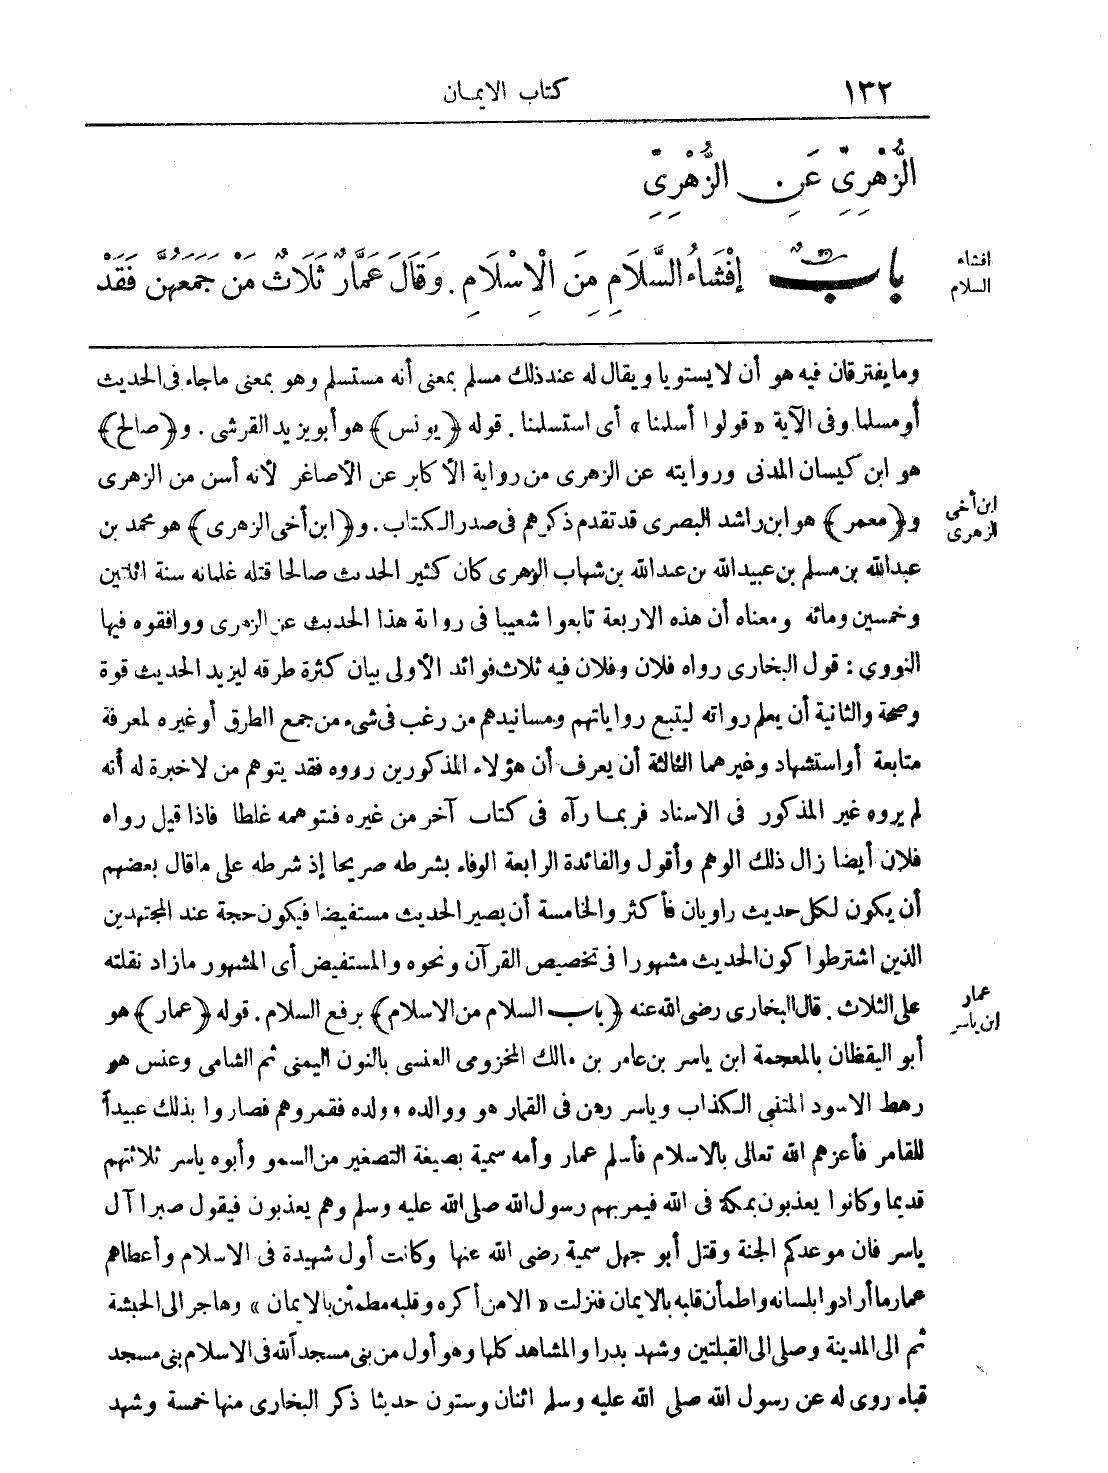 ١٣٢ كتاب الايمان
الزُّهْرِىِّ عَنِ الزُّهْرِىِّ
بابٌ إِفْشَاءُ السَّلَامِ مِنَ الْإِسْلَامِ. وَقَالَ عَمَّارٌ ثَلَاثٌ مَنْ جَمَعَهُنَّ فَقَدْ
افشاء
السلام
وما يفترقان فيه هو أن لا يستويا ويقال له عند ذلك مسلم بمعنى أنه مستسلم وهو بمعنى ماجاء فى الحديث
أو مسلما وفى الآية «قولوا أسلمنا» أى استسلمنا. قوله ﴿يونس﴾ هو أبو يزيد القرشى. و﴿صالح﴾
هو ابن كيسان المدنى وروايته عن الزهرى من رواية الأكابر عن الأصاغر لأنه أسن من الزهرى
و﴿معمر﴾ هو ابن راشد البصرى قد تقدم ذكرهم فى صدر الكتاب. و﴿ابن أخى الزهرى﴾ هو محمد بن
ابن أخى
الزهرى
عبدالله بن مسلم بن عبيدالله بن عبدالله بن شهاب الزهرى كان كثير الحديث صالحا قتله غلمانه سنة اثنتين
وخمسين ومائة ومعناه أن هذه الاربعة تابعوا شعيبا فى رواية هذا الحديث عن الزهرى ووافقوه فيها
النووي: قول البخارى رواه فلان وفلان فيه ثلاث فوائد الأولى بيان كثرة طرقه ليزيد الحديث قوة
وصحة والثانية أن يعلم رواته ليتبع رواياتهم ومسانيدهم من رغب فى شىء من جمع الطرق أو غيره لمعرفة
متابعة أواستشهاد وغيرهما الثالثة أن يعرف أن هؤلاء المذكورين رووه فقد يتوهم من لاخبرة له أنه
لم يروه غير المذكور فى الاسناد فربما رآه فى كتاب آخر من غيره فتوهمه غلطا فاذا قيل رواه
فلان أيضا زال ذلك الوهم وأقول والفائدة الرابعة الوفاء بشرطه صريحا إذ شرطه على ماقال بعضهم
أن يكون لكل حديث راويان فأكثر والخامسة أن يصير الحديث مستفيضا فيكون حجة عند المجتهدين
الذين اشترطوا كون الحديث مشهورا فى تخصيص القرآن ونحوه والمستفيض أى المشهور مازاد نقلته
على الثلاث. قال البخارى رضى الله عنه ﴿باب السلام من الاسلام﴾ برفع السلام. قوله ﴿عمار﴾ هو
عمار
ابن ياسر
أبو اليقظان بالمعجمة ابن ياسر بن عامر بن مالك المخزومى العنسى بالنون اليمنى ثم الشامى وعنس هو
رهط الاسود المتنبى الكذاب وياسر رهن فى القمار هو ووالده وولده فقمروهم فصاروا بذلك عبيداً
للقامر فأعزهم الله تعالى بالاسلام فأسلم عمار وأمه سمية بصيغة التصغير من السمو وأبوه ياسر ثلاثتهم
قديما وكانوا يعذبون بمكة فى الله فيمر بهم رسول الله صلى الله عليه وسلم وهم يعذبون فيقول صبرا آل
ياسر فان موعدكم الجنة وقتل أبو جهل سمية رضى الله عنها وكانت أول شهيدة فى الاسلام وأعطاهم
عمار ما أرادوا بلسانه واطمأن قلبه بالايمان فنزلت «الا من أكره وقلبه مطمئن بالايمان» وهاجر الى الحبشة
ثم الى المدينة وصلى الى القبلتين وشهد بدرا والمشاهد كلها وهو أول من بنى مسجد الله فى الاسلام بنى مسجد
قباء روى له عن رسول الله صلى الله عليه وسلم اثنان وستون حديثا ذكر البخارى منها خمسة وشهد